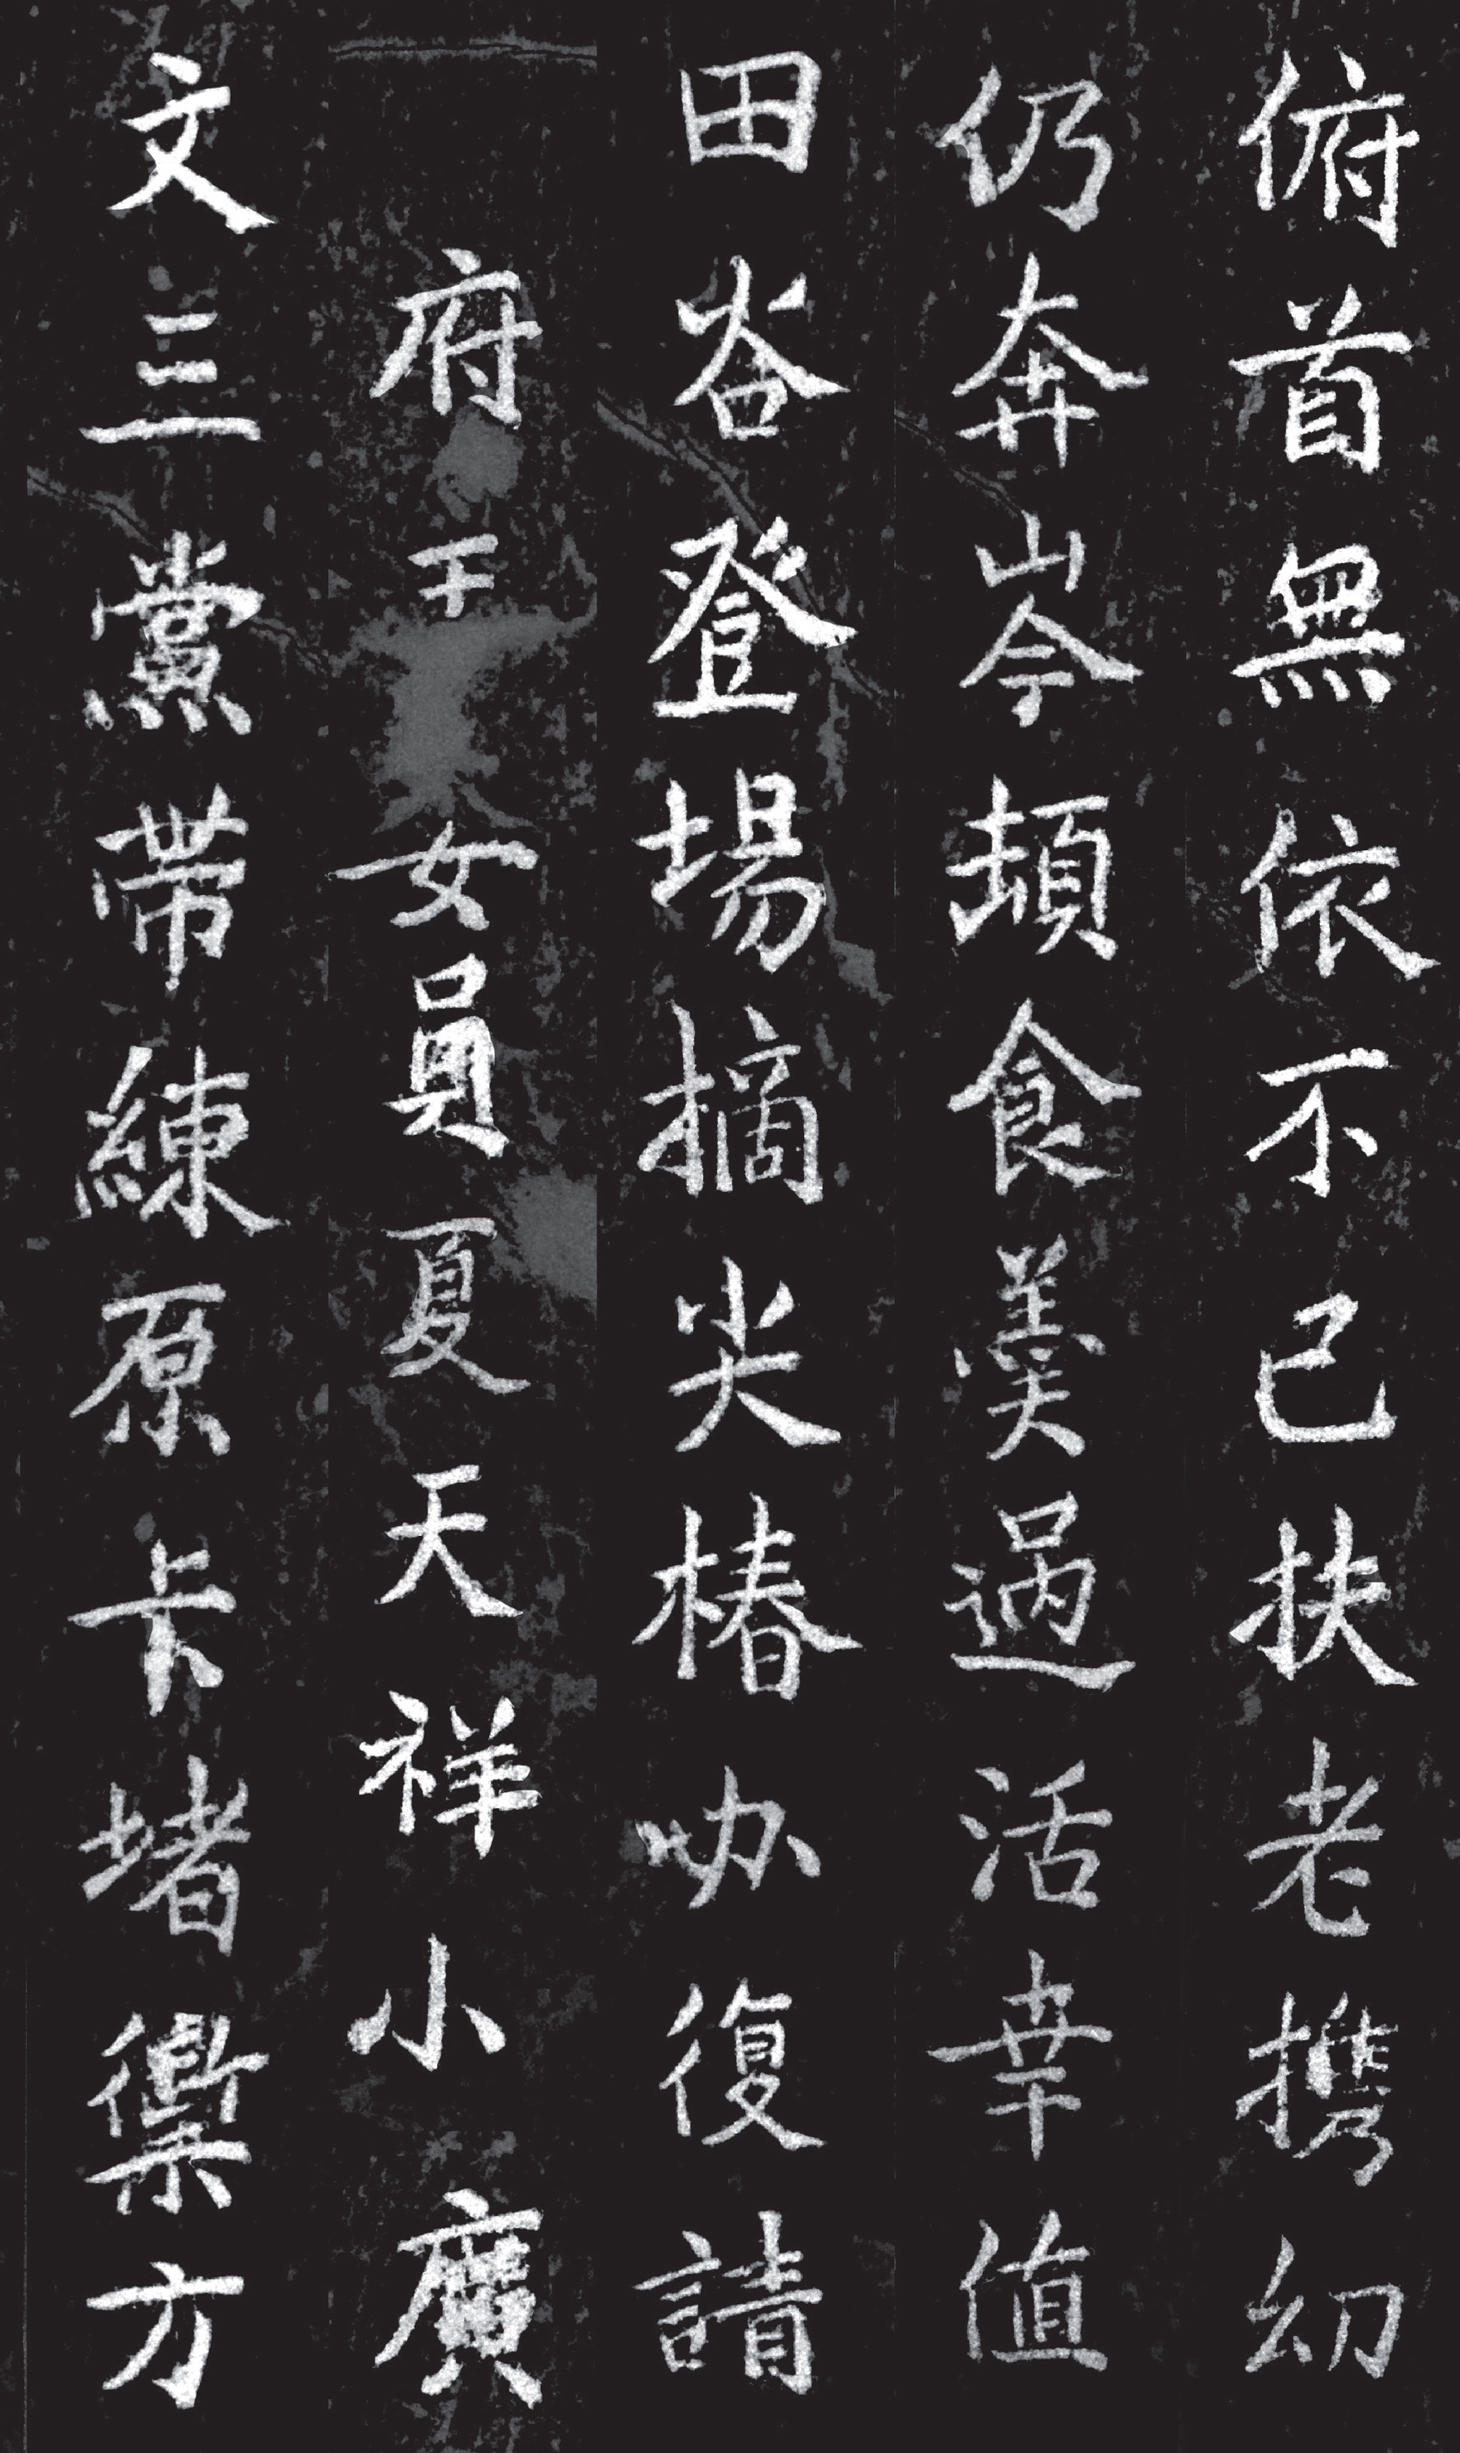 俯首無依不已扶老携幼
仍奔山岺頓食羹過活幸值
田谷登場摘尖椿办復請
府王女員夏天祥小廣
文三黨帶練原卡堵禦方